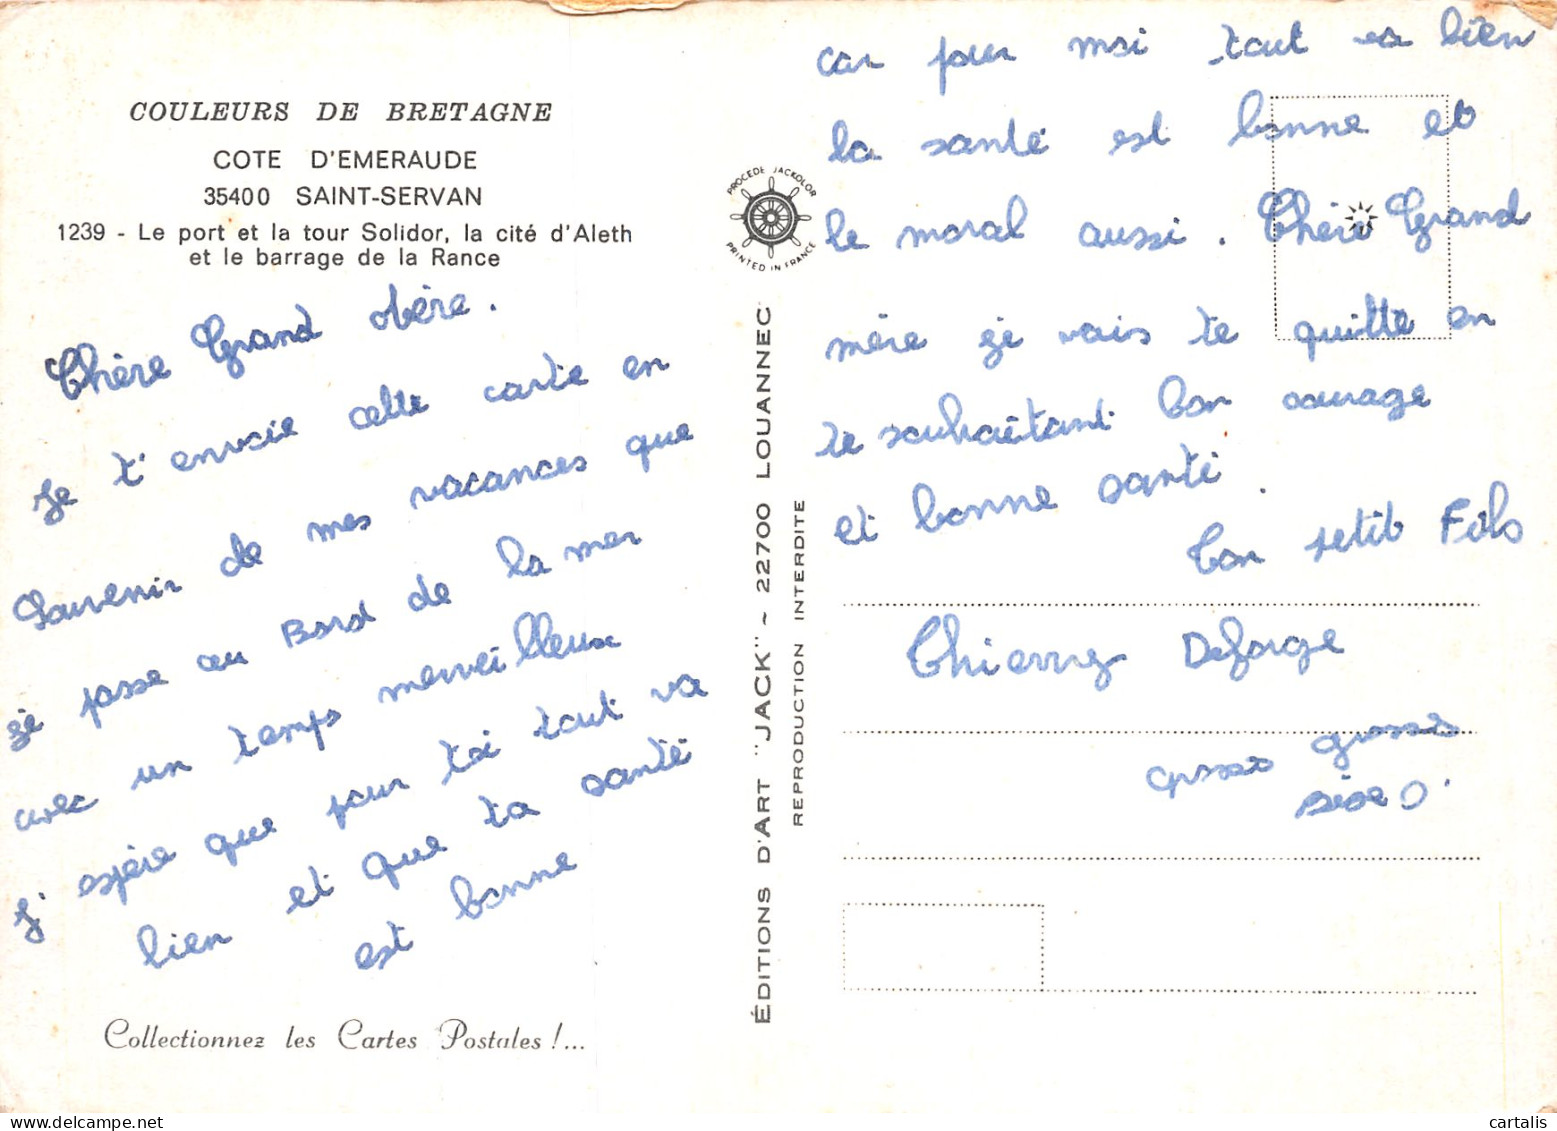 COULEURS DE BRETAGNE
COTE D'EMERAUDE
35400 SAINT-SERVAN
1239 - Le port et la tour Solidor, la cité d'Aleth
et le barrage de la Rance
Chère Grand Mère.
Je t'envoie cette carte en
Souvenir de mes vacances que
je passe au Bord de la mer
avec un temps merveilleux
j'espère que pour toi tout va
bien et que ta santé
est bonne
Collectionnez les Cartes Postales !...
PROCEDE JACKOLOR
PRINTED IN FRANCE
ÉDITIONS D'ART "JACK" ~ 22700 LOUANNEC
REPRODUCTION INTERDITE
car pour moi tout va bien
la santé est bonne et
le moral aussi. Chère Grand
mère je vais te quitte en
te souhaitant bon courage
et bonne santé.
Ton petit Fils
Thierry Deforge
grosses
cartalis